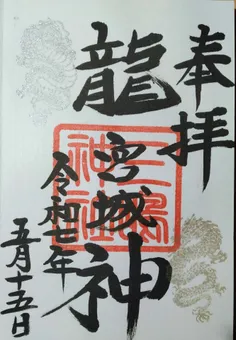 奉拝
龍宮城神
令和七年
五月十五日